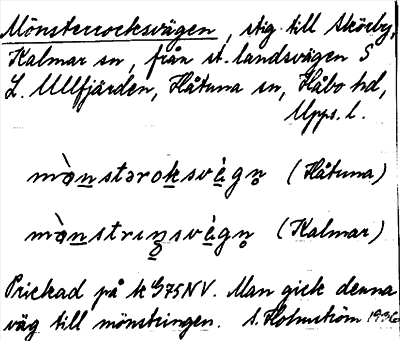 Mönsterrocksvägen, stig till Skörby,
Kalmar sn, från st. landsvägen S
L. Ullfjärden, Håtuna sn, Håbo hd,
Upps. l.
mònstəroksvǟgn̥ (Håtuna)
mònstrıŋsvǟgn̥ (Kalmar)
Prickad på k G75NV. Man gick denna
väg till mönstringen. S. Holmström 1936